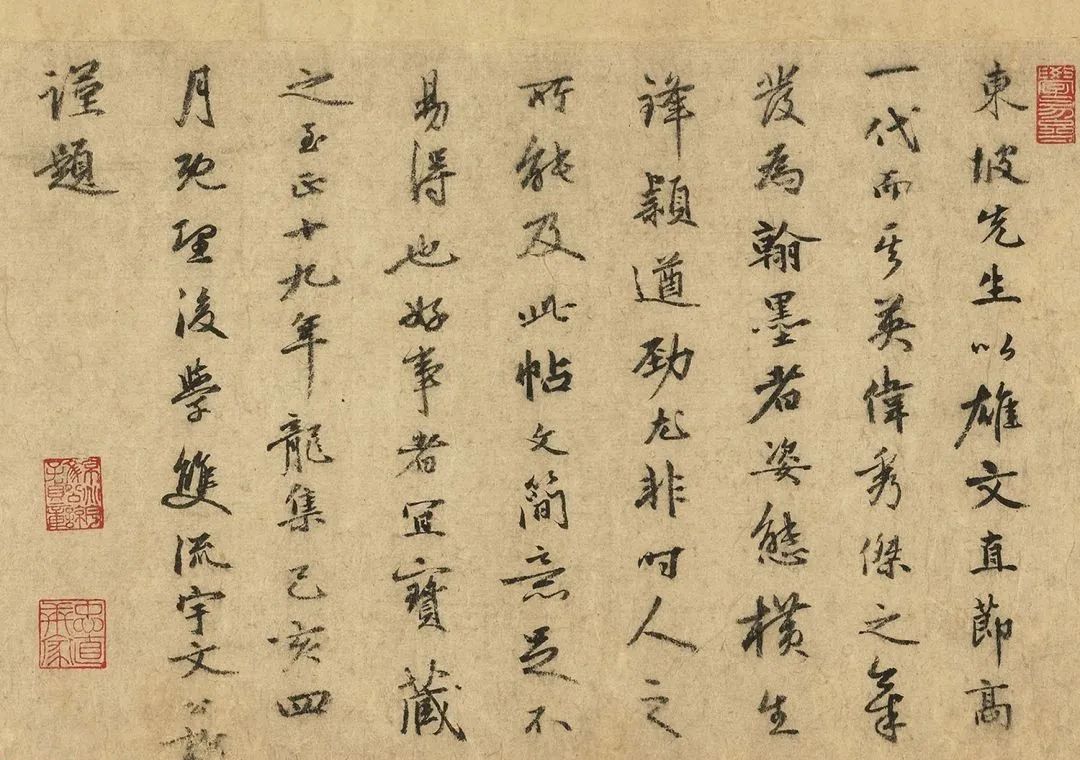 東坡先生以雄文直節高
一代而其英偉秀傑之氣
發為翰墨者姿態橫生
鋒穎遒勁尤非時人之
所能及此帖文簡意足不
易得也好事者宜寶藏
之至正十九年龍集己亥四
月既望後學雙流宇文公諒
謹題